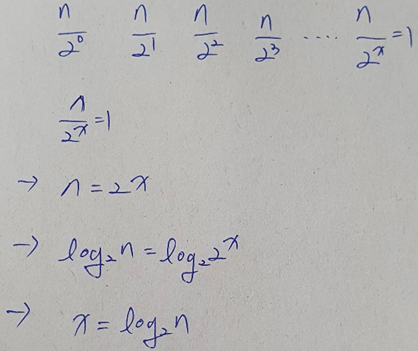 n/2^0 n/2^1 n/2^2 n/2^3 ···· n/2^x = 1
n/2^x = 1
→ n = 2^x
→ log₂n = log₂2^x
→ x = log₂n